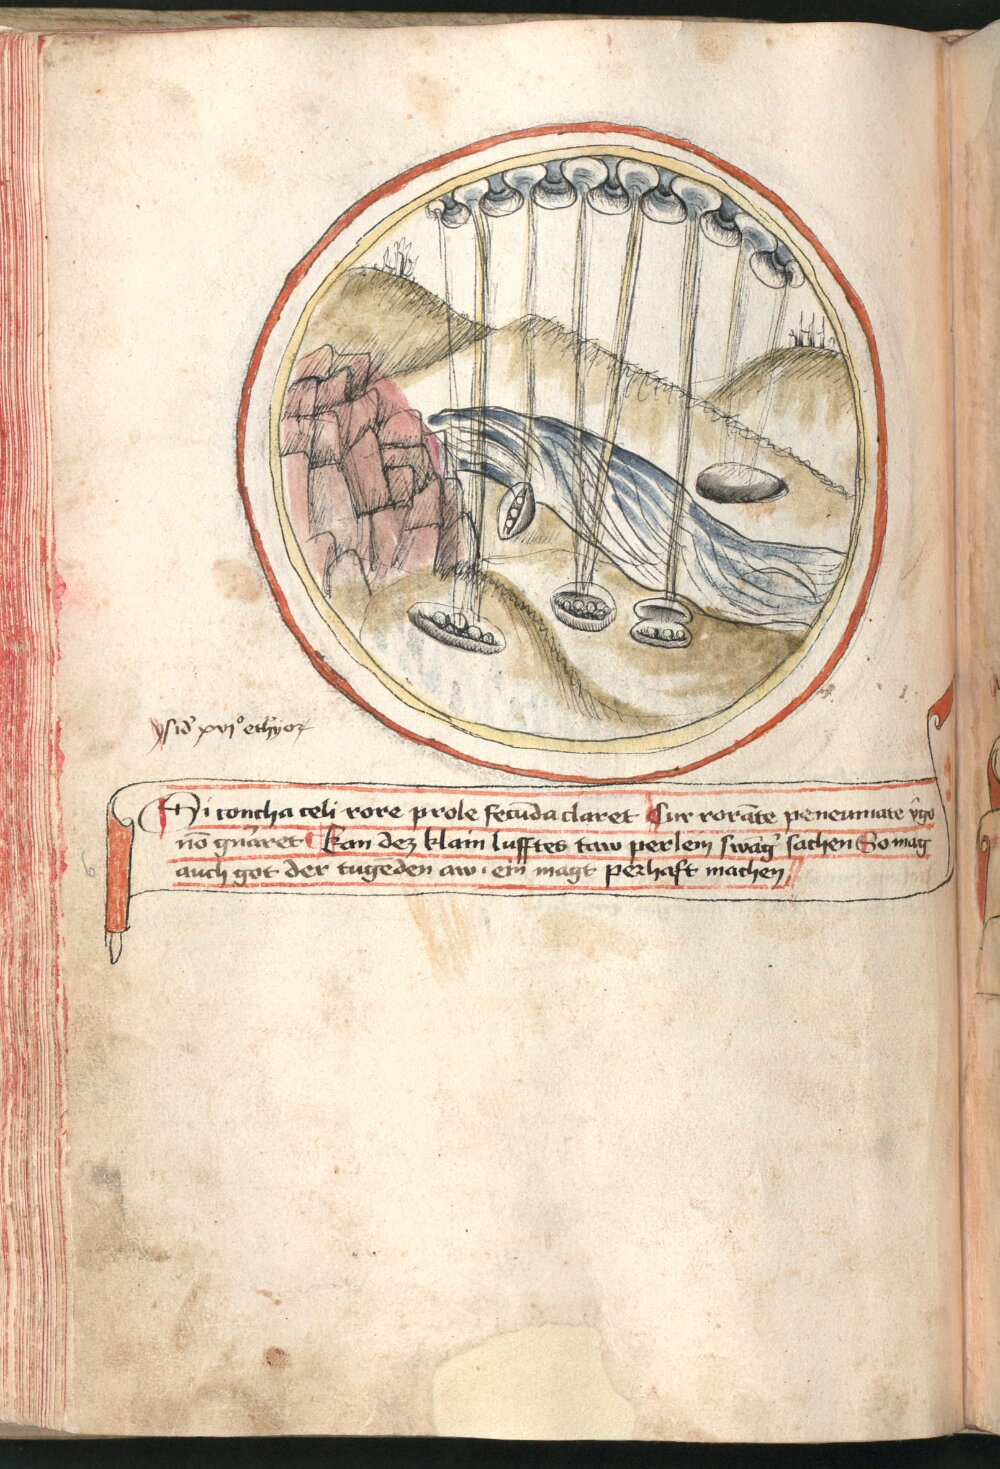 ysid' xvi° ethȳor
Si concha celi rore prole fecūda claret Cur rorāte peneumate v̄go
nō gn̄aret Kan dez klain lufftes taw perlein swāg' sachen So mag
auch got der tugēden aw ein magt perhaft machen